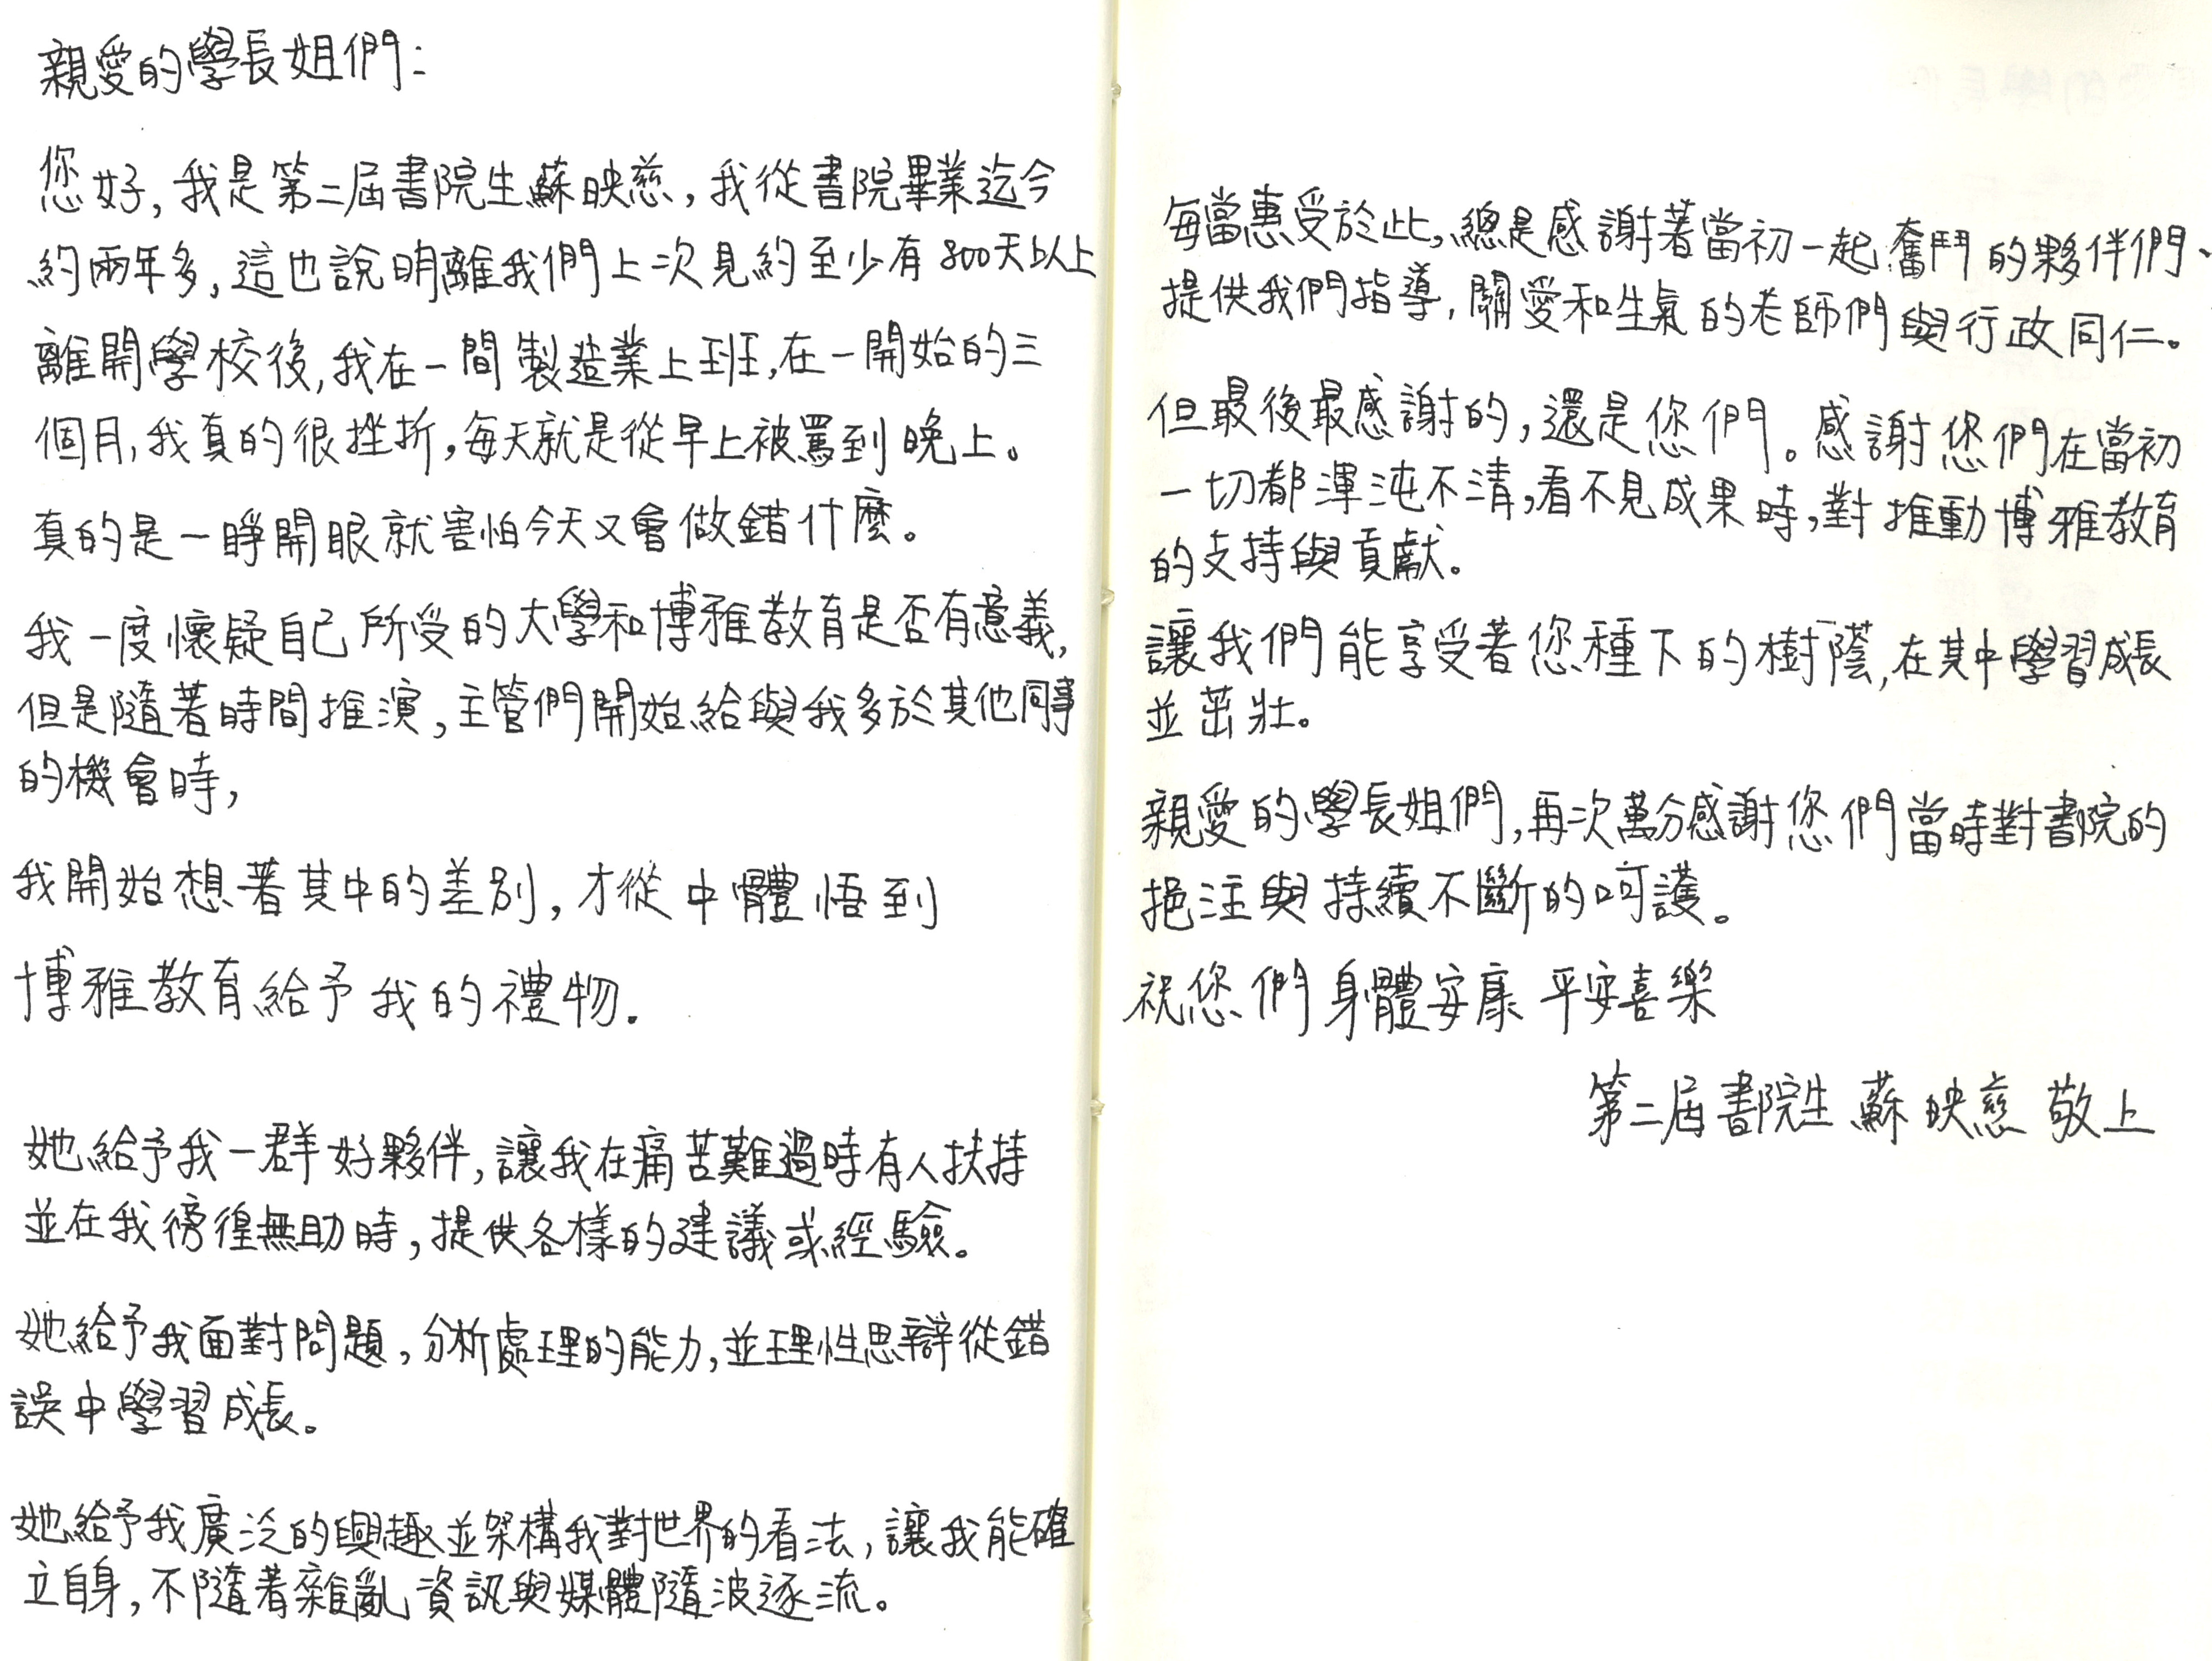 親愛的學長姐們：
您好，我是第二屆書院生蘇映慈，我從書院畢業迄今
約兩年多，這也說明離我們上次見約至少有800天以上
離開學校後，我在一間製造業上班，在一開始的三
個月，我真的很挫折，每天就是從早上被罵到晚上。
真的是一睜開眼就害怕今天又會做錯什麼。
我一度懷疑自己所受的大學和博雅教育是否有意義，
但是隨著時間推演，主管們開始給與我多於其他同事
的機會時，
我開始想著其中的差別，才從中體悟到
博雅教育給予我的禮物．
她給予我一群好夥伴，讓我在痛苦難過時有人扶持
並在我徬徨無助時，提供各樣的建議或經驗。
她給予我面對問題，分析處理的能力，並理性思辯從錯
誤中學習成長。
她給予我廣泛的興趣並架構我對世界的看法，讓我能確
立自身，不隨著雜亂資訊與媒體隨波逐流。
每當惠受於此，總是感謝著當初一起奮鬥的夥伴們、
提供我們指導，關愛和生氣的老師們與行政同仁。
但最後最感謝的，還是您們。感謝您們在當初
一切都渾沌不清，看不見成果時，對推動博雅教育
的支持與貢獻。
讓我們能享受著您種下的樹蔭，在其中學習成長
並茁壯。
親愛的學長姐們，再次萬分感謝您們當時對書院的
挹注與持續不斷的呵護。
祝您們身體安康 平安喜樂
第二屆書院生 蘇映慈 敬上